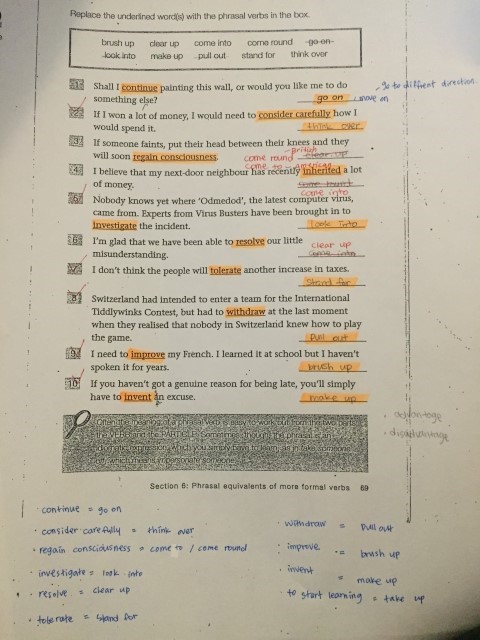 Replace the underlined word(s) with the phrasal verbs in the box.
brush up clear up come into come round go on
look into make up pull out stand for think over
1 Shall I continue painting this wall, or would you like me to do
something else? go on move on
go to different direction
2 If I won a lot of money, I would need to consider carefully how I
would spend it. think over
3 If someone faints, put their head between their knees and they
will soon regain consciousness. come round - british clear up
come to - american
4 I believe that my next-door neighbour has recently inherited a lot
of money. come round
come into
5 Nobody knows yet where 'Odmedod', the latest computer virus,
came from. Experts from Virus Busters have been brought in to
investigate the incident. look into
6 I'm glad that we have been able to resolve our little clear up
misunderstanding. come into
7 I don't think the people will tolerate another increase in taxes.
stand for
8 Switzerland had intended to enter a team for the International
Tiddlywinks Contest, but had to withdraw at the last moment
when they realised that nobody in Switzerland knew how to play
the game. Pull out
9 I need to improve my French. I learned it at school but I haven't
spoken it for years. brush up
10 If you haven't got a genuine reason for being late, you'll simply
have to invent an excuse. make up
advantage
disadvantage
Often the meaning of a phrasal verb is easy to work out from the two parts,
the VERB and the PARTICLE. Sometimes, though, the phrase is an
idiomatic expression which you simply have to learn, as in take someone
off, which means impersonate someone.
Section 6: Phrasal equivalents of more formal verbs 69
continue = go on
consider carefully = think over
regain consciousness = come to / come round
investigate = look into
resolve = clear up
tolerate = stand for
withdraw = Pull out
improve = brush up
invent = make up
to start learning = take up